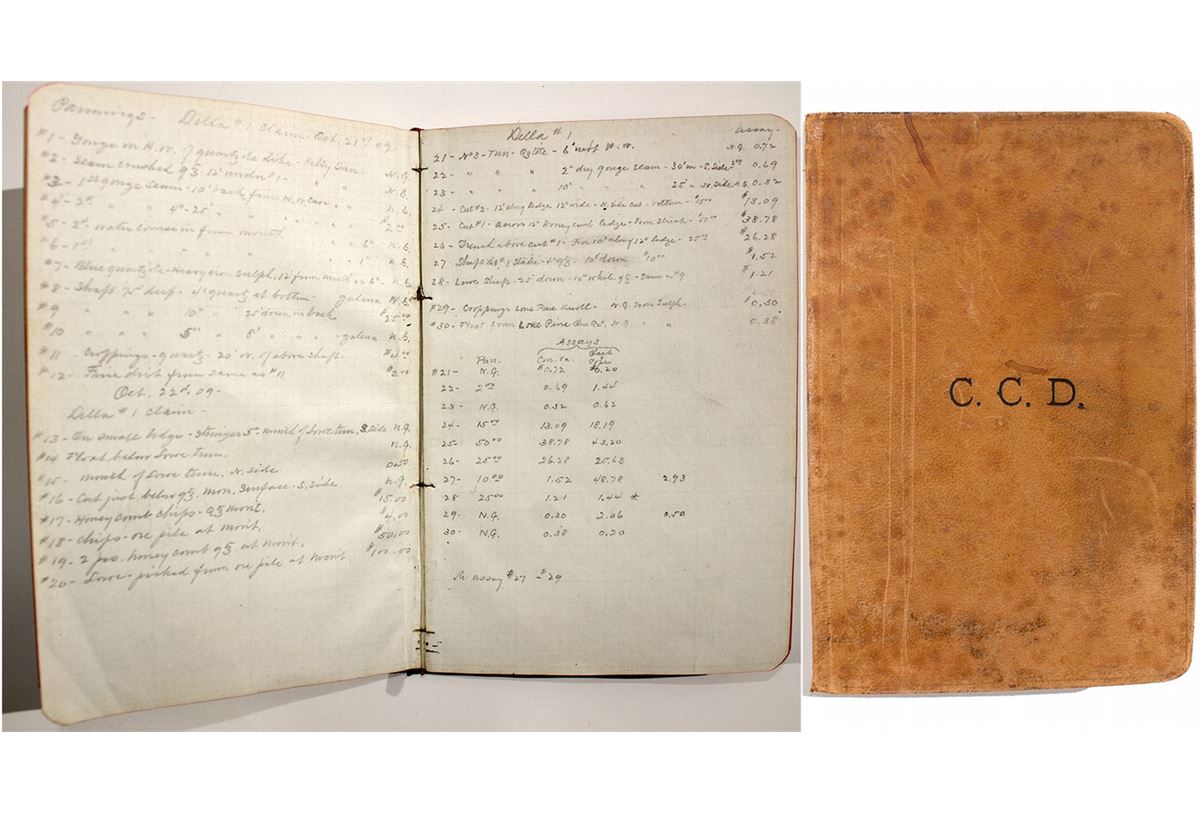 Pannings - Della #1 Claim Oct. 21st 09-
#1 - Gouge on H.W. of quartzite dike - Kelly Tun. N.G.
#2 - Seam crushed q3 12" under #1 - " " N.G.
#3 - 1st gouge seam - 10' back from H.W. " " N.G.
#4 - 2nd " " 4" - 25' " " 2.00
#5 - 2nd water course in from mouth " " N.G.
#6 - 1st " " " " " " N.G.
#7 - Blue quartzite - Heavy iron sulph. 12' from mouth N.G.
#8 - Shaft 75' deep - 4" quartz at bottom - galena N.G.
#9 " " " 10" " 25' down in back $25.00
#10 " " " 5" " 8' " " - galena N.G.
#11 - Croppings - quartz - 20' W. of above shaft.
#12 - Fine dirt from same as #11 2.00
Oct. 22d. 09 -
Della #1 Claim -
#13 - On small ledge - stringer 5" - mouth of Lowe tun. S. side N.G.
#14 Float below Lowe tun. N.G.
#15 - mouth of Lowe tunn. N. side 0.50
#16 - Cut just below q3 mon. Surface - S. side N.G.
#17 - Honey comb chips - q3 mont. $15.00
#18 - chips - ore pile at mont. $4.00
#19 - 2 pcs. honey comb q3 at mont. $50.00
#20 - Lowe - picked from ore pile at mont. $100.00
Della #1 assay.
21 - No 3 - Tun - Qzite - 6' next H.W. N.G. 0.72
22 - " " " 2" dry gouge seam - 30' in - S. side 0.69
23 - " " " 10" " " 25" " N. side N.G. 0.32
24 - Cut #2 - 12" along ledge 12" wide - N. side cut - bottom - $15.00 $13.09
25 - Cut #1 - Across 12" Honey comb ledge - Iron Streak - 50.00 $38.78
26 - Trench above cut #1 - For 10' along 12" ledge - 25.00 $26.28
27 - Shaft at #1 Stake - 4" q3 - 10' down $10.00 $1.52
28 - Lowe Shaft - 25' down - 10" White q3 - Same as #9 $1.21
#29 - Croppings Lone Pine Knoll - N.G. Iron Sulph - $0.30
#30 - Float from Lone Pine N.G. " " 0.38
Assays
Pan. Con. Va. Black
#21 - N.G. $0.72 $0.20
22 - 2.00 0.69 1.44
23 - N.G. 0.32 0.62
24 - 15.00 13.09 18.19
25 - 50.00 38.78 43.20
26 - 25.00 26.28 25.63
27 - 10.00 1.52 48.78 2.93
28 25.00 1.21 1.44 *
29 - N.G. 0.30 2.06 0.50
30 - N.G. 0.38 0.20
Re. assay #27 - #29
C. C. D.